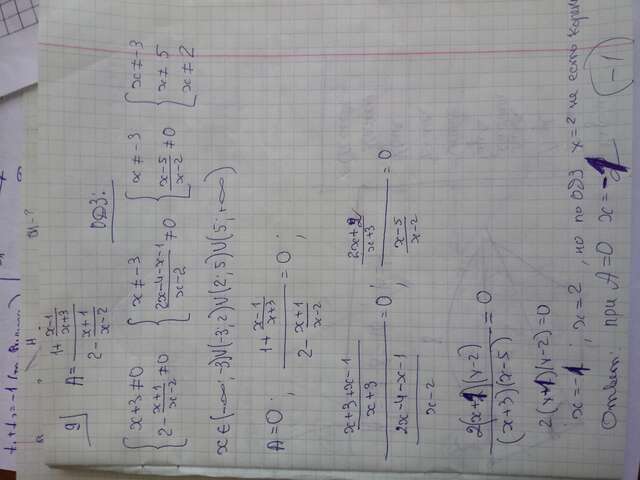 t₁ + t₂ = -1 (по Виета)
9] A = (1 + (x-1)/(x+3)) / (2 - (x+1)/(x-2))
ОДЗ:
{ x+3 ≠ 0 { x ≠ -3 { x ≠ -3 { x ≠ -3
2 - (x+1)/(x-2) ≠ 0 (2x-4-x-1)/(x-2) ≠ 0 (x-5)/(x-2) ≠ 0 x ≠ 5
x ≠ 2
x ∈ (-∞; -3) ∪ (-3; 2) ∪ (2; 5) ∪ (5; +∞)
A = 0 ; (1 + (x-1)/(x+3)) / (2 - (x+1)/(x-2)) = 0 ;
((x+3+x-1)/(x+3)) / ((2x-4-x-1)/(x-2)) = 0 ; ((2x+2)/(x+3)) / ((x-5)/(x-2)) = 0
(2(x+1)(x-2)) / ((x+3)(x-5)) = 0
2(x+1)(x-2) = 0
x = -1 ; x = 2 , но по ОДЗ x = 2 не есть корен
Ответ: при A = 0 x = -1 (-1)